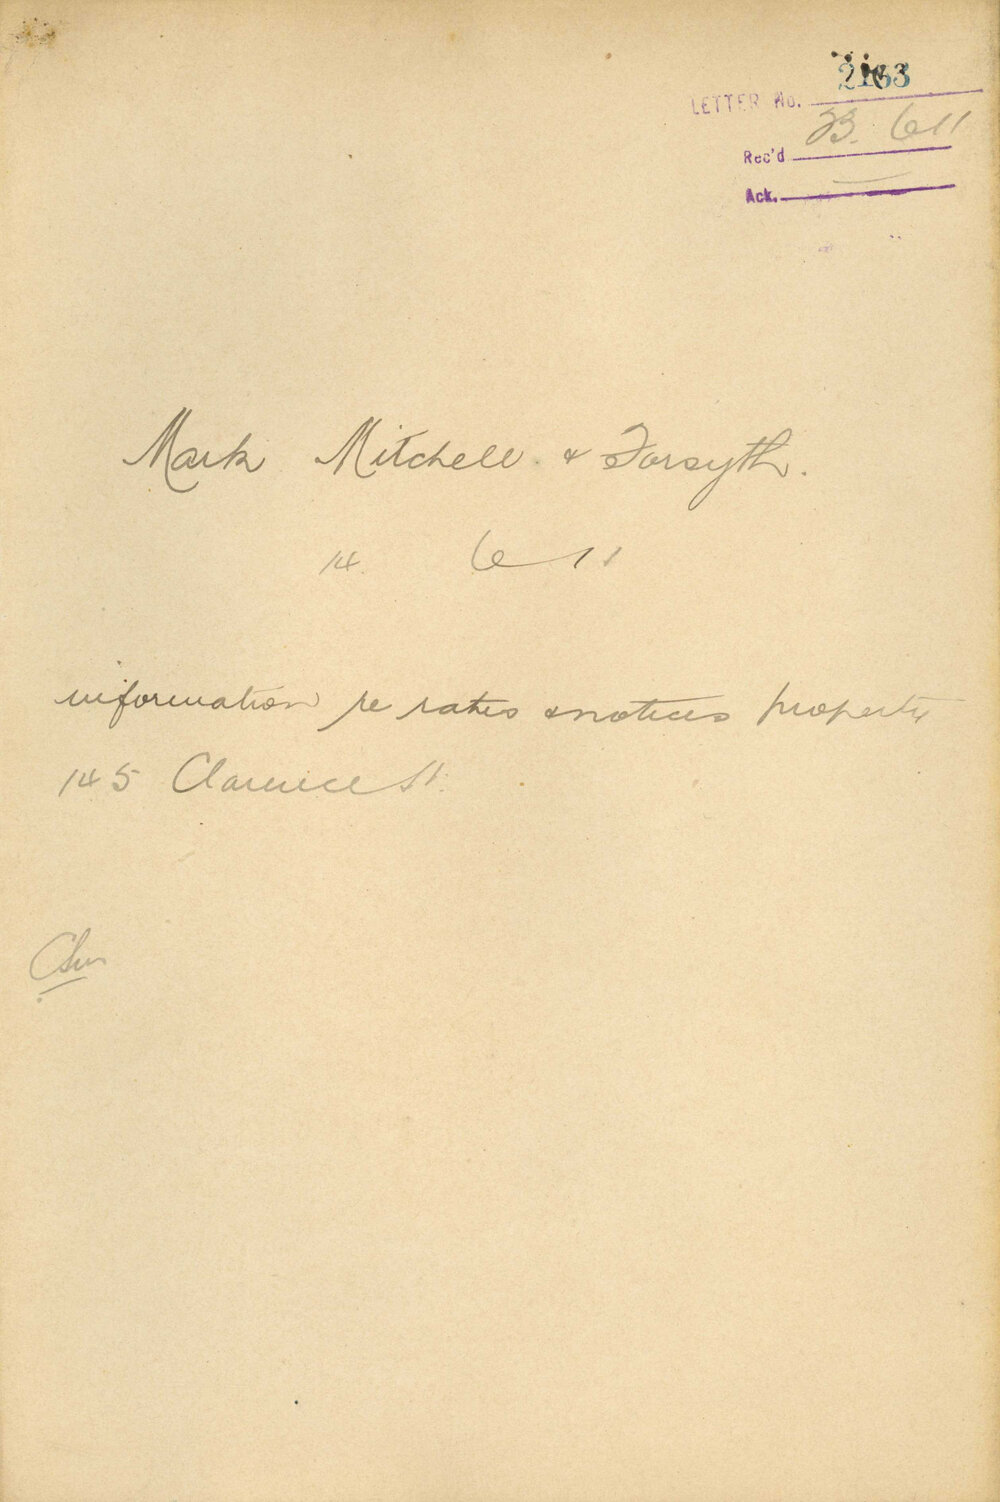 LETTER No. 2163
Rec'd 23. 6 11
Ack.
Mark Mitchell & Forsyth.
14 6 11
information re rates & notices property
145 Clarence St.